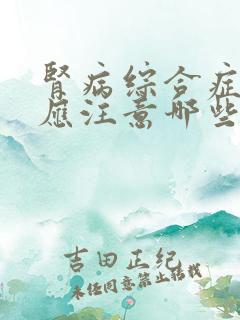 腎病綜合症
應注意哪些
吉田正紀
未经同意禁止转载